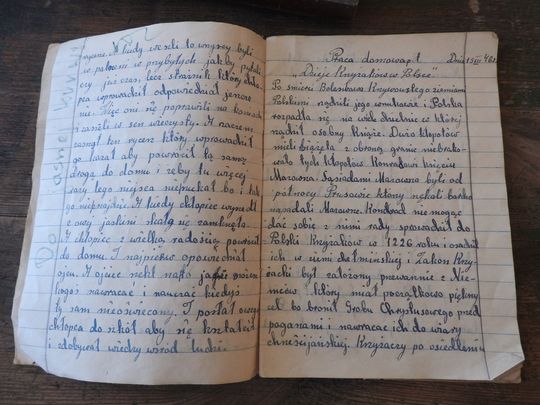 rycerze. A kiedy weszli to wszyscy byli
w patrzeni w przybyłych jakby pytali
czy już czas, lecz strażnik który chłop-
ca wprowadził odpowiedział jeszcze
nie. Więc oni się poprzewrli na
i usneli w sen wieczysty. A naczem
zasnął ten rycerz który wprowadził
go kazał aby powrócił tą samą
drogą do domu i żeby tu więcej
razy tego miejsca nieszukał bo i tak
go nieznajdzie. A kiedy chłopiec wyszedł
z owej jaskini skała się zamknęła.
A chłopiec z wielką radością powrócił
do domu. I naprzekw opowiedział
ojcu. A ojciec rzekł na to jak możesz
kogoś nawracać i nauczać kiedyś
ty sam nieoświecony. I posłał owego
chłopca do szkół aby się kształcił
i zdobywał wiedzę wśród ludzi.
Praca domowa 1 Dnia 15 III 46r.
"Dzieje Krzyżaków w Polsce"
Po śmierci Bolesława Krzywoustego ziemiami
Polskimi rządzili jego synowie i Polska
rozpadła się na wiele dzielnic w której
rządził osobny książe. Dużo kłopotów
mieli książęta z obroną granic niebrako-
wało tych kłopotów Konradowi księciu
Mazowsza. Sąsiadami Mazowsza byli od
północy Prusowie, którzy nękali bardzo
napadali Mazowsze. Kondrad nie mogąc
dać sobie z nimi rady sprowadził do
Polski Krzyżaków w 1226 roku i osadził
ich w ziemi chełmińskiej. Zakon Krzy-
żacki był założony przeważnie z Nie-
mców, który miał początkowo piękny
cel bo bronił Grobu Chrystusowego przed
poganami i nawracać ich do wiary
chrześcijańskiej. Krzyżacy po osiedleniu